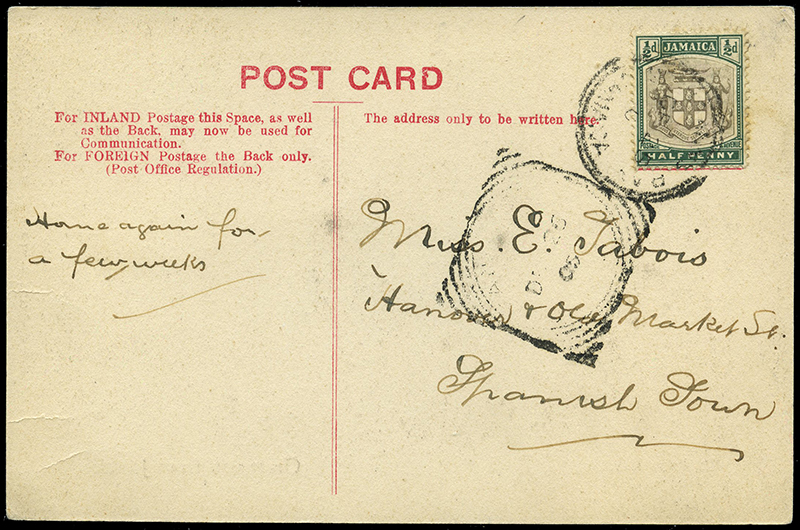 POST CARD
For INLAND Postage this Space, as well
as the Back, may now be used for
Communication.
For FOREIGN Postage the Back only.
(Post Office Regulation.)
The address only to be written here.
½d JAMAICA ½d
POSTAGE REVENUE
HALFPENNY
Home again for
a few weeks
Miss. E. Tabois
Hanover & Old Market St.
Spanish Town